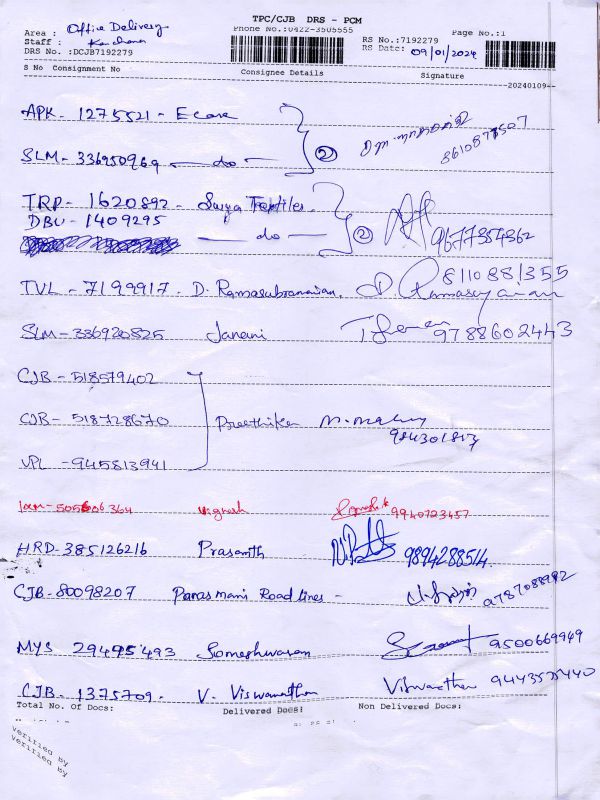 TPC/CJB DRS - PCM
Phone No.:0422-3505555
Area : Office Delivery
Staff : Kanchana
DRS No. :DCJB7192279
RS No.:7192279
RS Date: 09/01/2024
Page No.:1
S No Consignment No Consignee Details Signature
--20240109--
APK - 1275521 - E care
8610577507
SLM - 336950969 — do — ②
TRP - 1620892 - Surya Textiles.
DBU - 1409295 — do — ② 9677354362
TVL - 7199917 - D. Ramasubramanian, 8110881355
SLM - 336920825 Janani 9788602443
CJB - 518579402
CJB - 518728670 Preethika
VPL - 945813941
Vignesh 9940723457
HRD - 385126216 Prasanth 9894288514
CJB - 80098207 Parasmani Roadlines - 9787088982
MYS 29495493 Someshwaran 9500669949
CJB - 1375709 - V. Viswanathan Viswanathan
Total No. Of Docs: Delivered Docs: Non Delivered Docs:
verified by
verified by